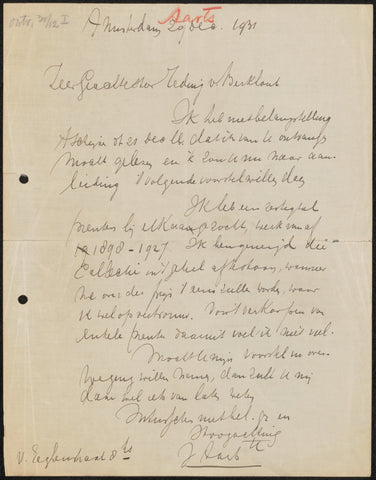 Aarts
Amsterdam 29 Dec. 1931
Zeer Geachte Heer Teding v Berkhout
Ik heb met belangstelling
schrijven van 23 dec dat ik van U ontvangen
mocht gelezen en ik zou U nu naar aan-
leiding 't volgende voorstel willen doen
Ik heb een
prenten bij elkaar gezocht, werk vanaf
1898 - 1927. Ik ben genegen die
Collectie in 't geheel af te staan, wanneer
we ons de prijs 't eens zullen worden, waar
ik wel op vertrouw. Voor 't verkoopen van
enkele prenten daaruit voel ik niet veel.
Mocht U mijn voorstel in over-
weging willen nemen, dan zult U mij
daar wel iets van laten weten
Intusschen met bel. gr en
Hoogachting
J Aarts
v. Eeghenstraat 8